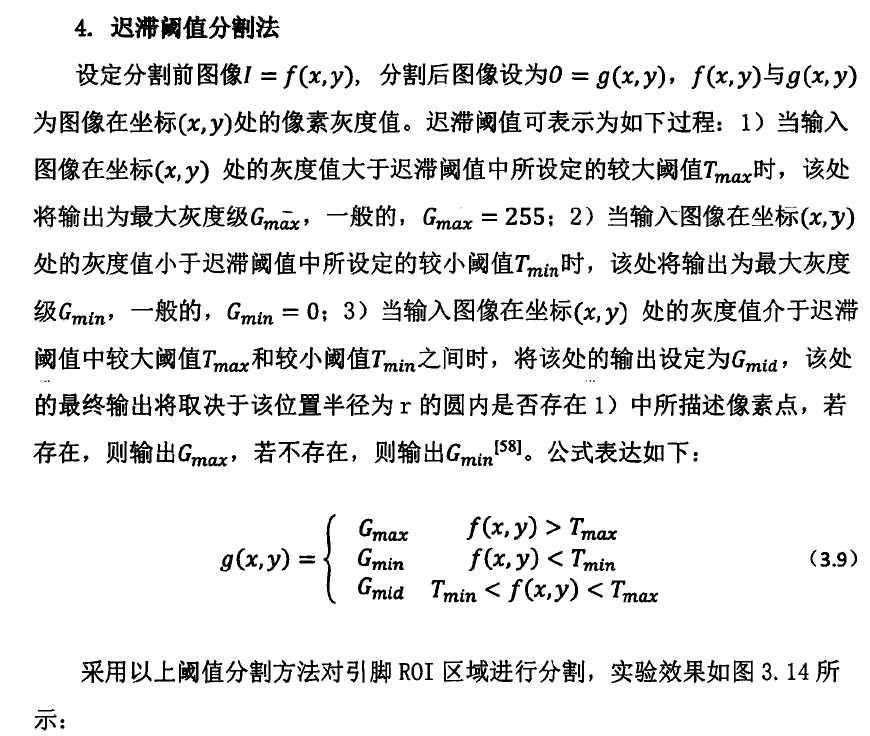 4. 迟滞阈值分割法
设定分割前图像I = f(x,y)，分割后图像设为O = g(x,y)，f(x,y)与g(x,y)
为图像在坐标(x,y)处的像素灰度值。迟滞阈值可表示为如下过程：1）当输入
图像在坐标(x,y) 处的灰度值大于迟滞阈值中所设定的较大阈值Tmax时，该处
将输出为最大灰度级Gmax，一般的，Gmax = 255；2）当输入图像在坐标(x,y)
处的灰度值小于迟滞阈值中所设定的较小阈值Tmin时，该处将输出为最大灰度
级Gmin，一般的，Gmin = 0；3）当输入图像在坐标(x,y) 处的灰度值介于迟滞
阈值中较大阈值Tmax和较小阈值Tmin之间时，将该处的输出设定为Gmid，该处
的最终输出将取决于该位置半径为 r 的圆内是否存在 1）中所描述像素点，若
存在，则输出Gmax，若不存在，则输出Gmin[58]。公式表达如下：
Gmax f(x,y) > Tmax
g(x,y) = { Gmin f(x,y) < Tmin （3.9）
Gmid Tmin < f(x,y) < Tmax
采用以上阈值分割方法对引脚 ROI 区域进行分割，实验效果如图 3.14 所
示：